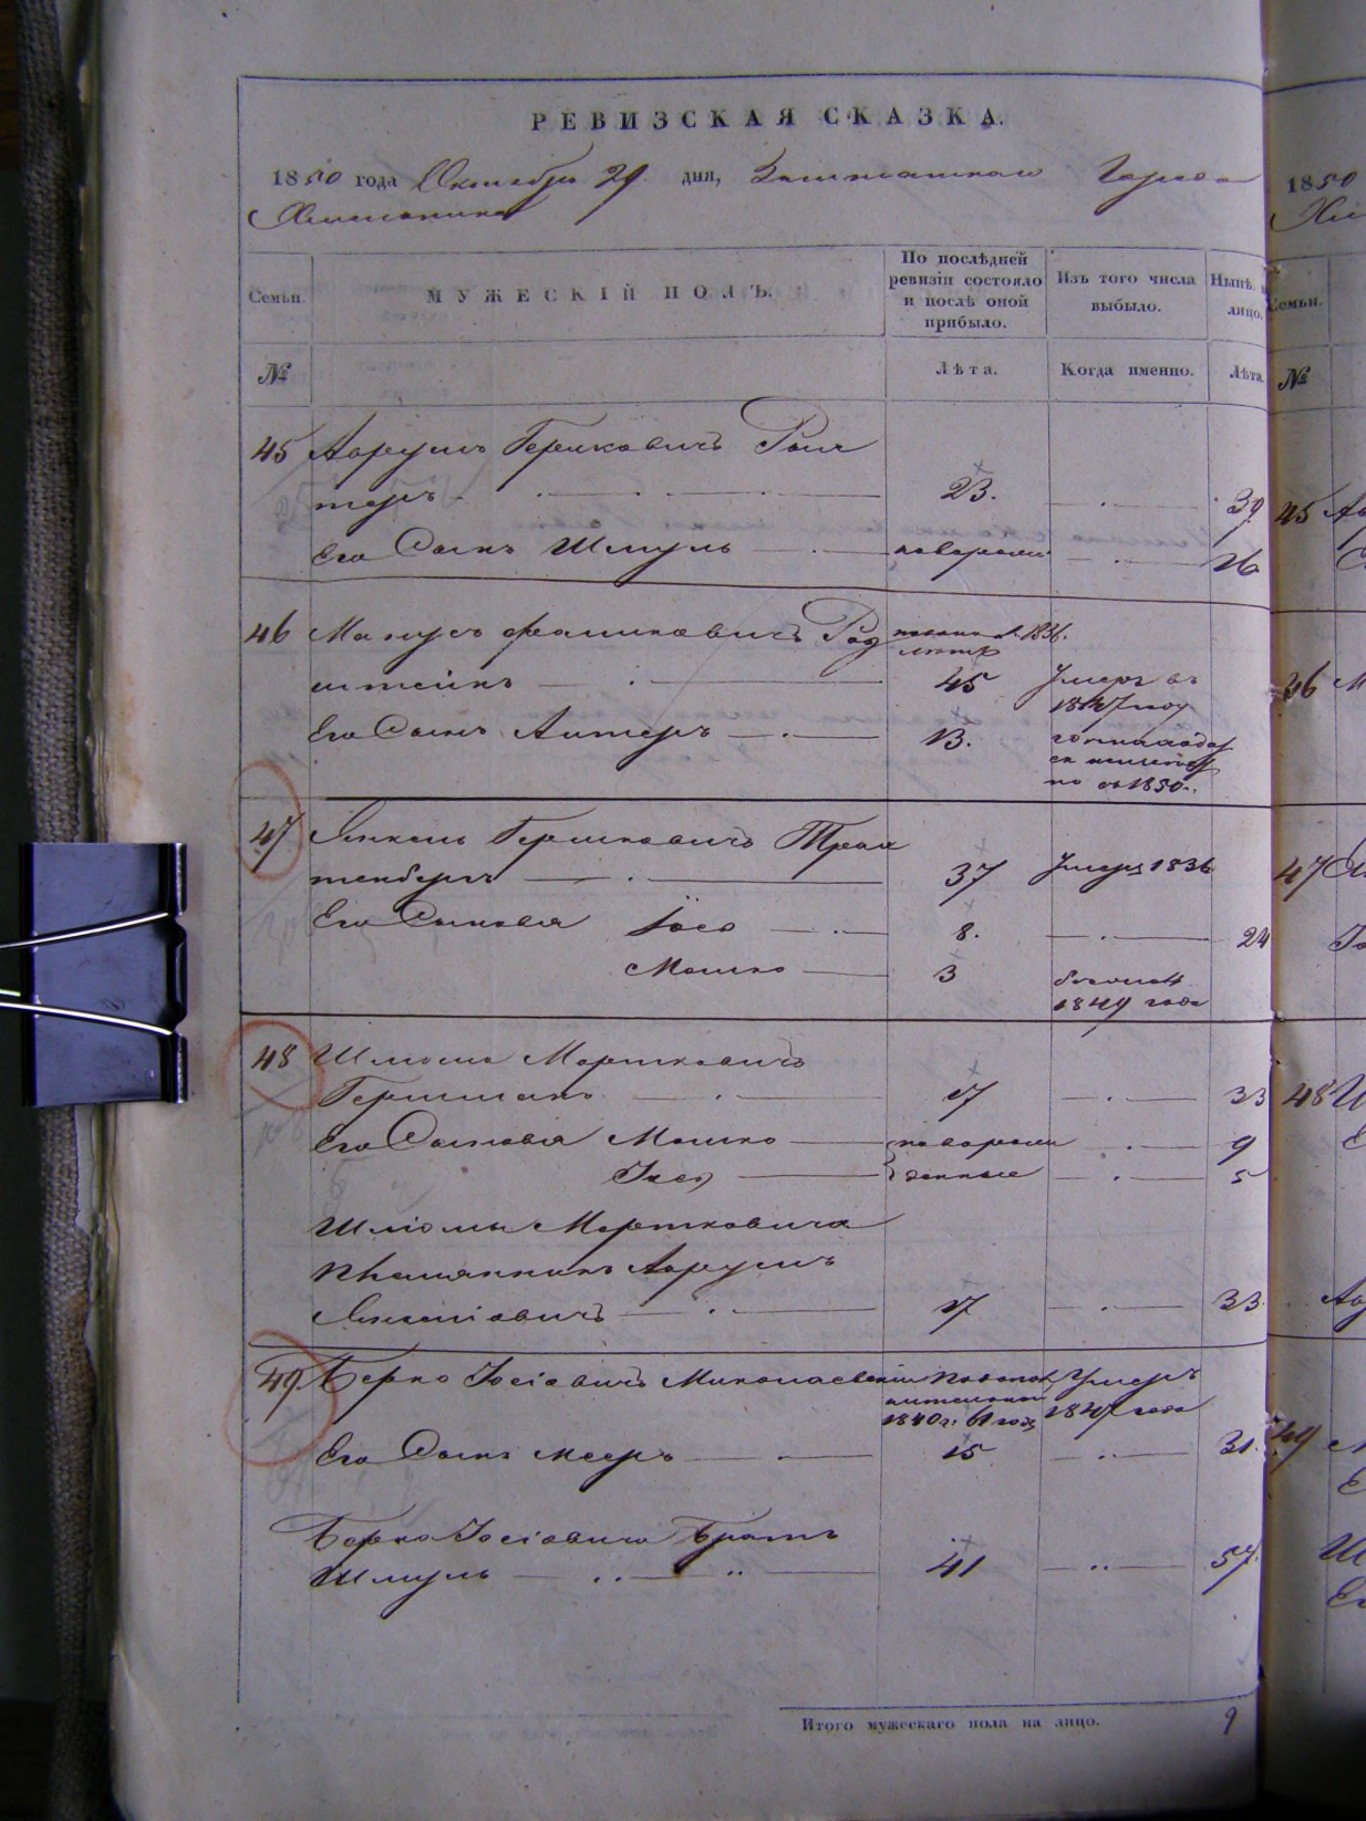 РЕВИЗСКАЯ СКАЗКА.
1850 года Октября 29 дня, Заштатного Города
Хмельника
Семьи. МУЖЕСКІЙ ПОЛЪ. По послѣдней ревизіи состояло и послѣ оной прибыло. Изъ того числа выбыло. Нынѣ на лицо.
№ Лѣта. Когда именно. Лѣта.
45 Аврумъ Гершковичъ
теръ 23. 39
Его Сынъ Шмуль 16
46 Манусъ Род 1836.
штейнъ 45 Умеръ въ
1847 году
Его Сынъ Антеръ 13.
въ 1850.
47 Янкель Гершковичъ Трах
тенбергъ 37 Умеръ 1836
Его Сыновья Іось 8. 24
Мошко 3
1849 года
48 Шлiома Мортковичъ
Гершманъ 17 33
Его Сыновья Мошко новорож 9
денные 5
Шлiомы Мортковича
Племянникъ Аврумъ
Янкеліовичъ 17 33.
49 Берко Іосіовичъ Миколаевскій Умеръ
1840 г. 61 года 1847 года
Его Сынъ Мееръ 15 31.
Берка Іосіовича Братъ
Шмуль 41 57.
Итого мужескаго пола на лицо. 9
1850
Семьи.
№
45
46
47
48
49